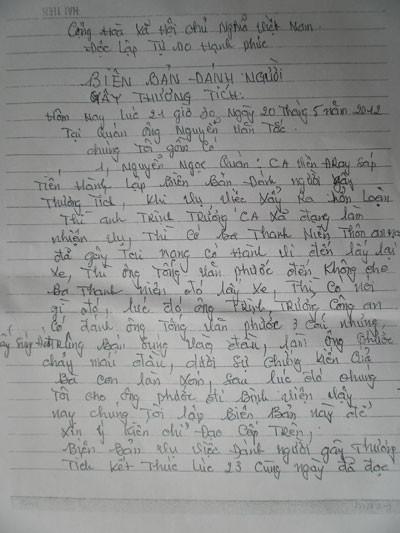 Cộng Hoà Xã Hội Chủ Nghĩa Việt Nam
Độc Lập Tự Do Hạnh phúc
BIÊN BẢN ĐÁNH NGƯỜI
GÂY THƯƠNG TÍCH.
Hôm Nay Lúc 21 giờ 30, Ngày 20 Tháng 5 năm 2012
Tại Quán ông Nguyễn Văn Tắc.
chúng Tôi gồm có
1, Nguyễn Ngọc Quân: CA thôn ĐRay Sáp
Tiến Hàng Lập Biên Bản Đánh người gây
Thương Tích, Khi Vụ Việc Xẩy Ra hỗn Loạn
Thì anh TRỊNH TRƯỜNG CA Xã đang làm
nhiệm Vụ, Thì Có ba Thanh Niên Thôn
đã gây Tai nạng có Hành Vi đến lấy lại
Xe, Thì ông Tống Văn phước đến Không cho
Ba Thanh Niên đó lấy Xe, Thì, Có nói
gì đó, lúc đó ông TRỊNH TRƯỜNG Công an
Có đánh ông Tống Văn phước 3 cái nhưng,
Trúng Bạn Cùng Vào đầu, làm ông phước
chảy máu đầu, dưới Sự Chứng Kiến Của
Bà con lân Xóm, Sau lúc đó chúng
Tôi cho ông phước đi Bệnh Viện Vậy
nay chúng Tôi lập Biên Bản này để
Xin ý kiến chỉ Đạo Cấp TRên,
Biên Bản Vụ Việc Đánh người gây Thương
Tích Kết Thúc Lúc 23 Cùng ngày đã đọc